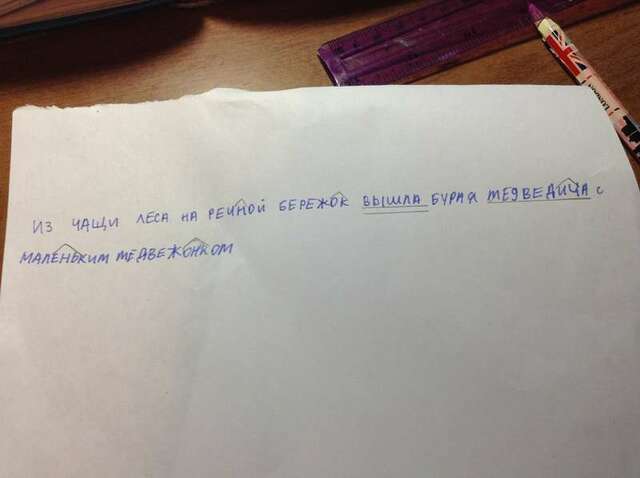 ИЗ ЧАЩИ ЛЕСА НА РЕЧНОЙ БЕРЕЖОК ВЫШЛА БУРАЯ МЕДВЕДИЦА С
МАЛЕНЬКИМ МЕДВЕЖОНКОМ